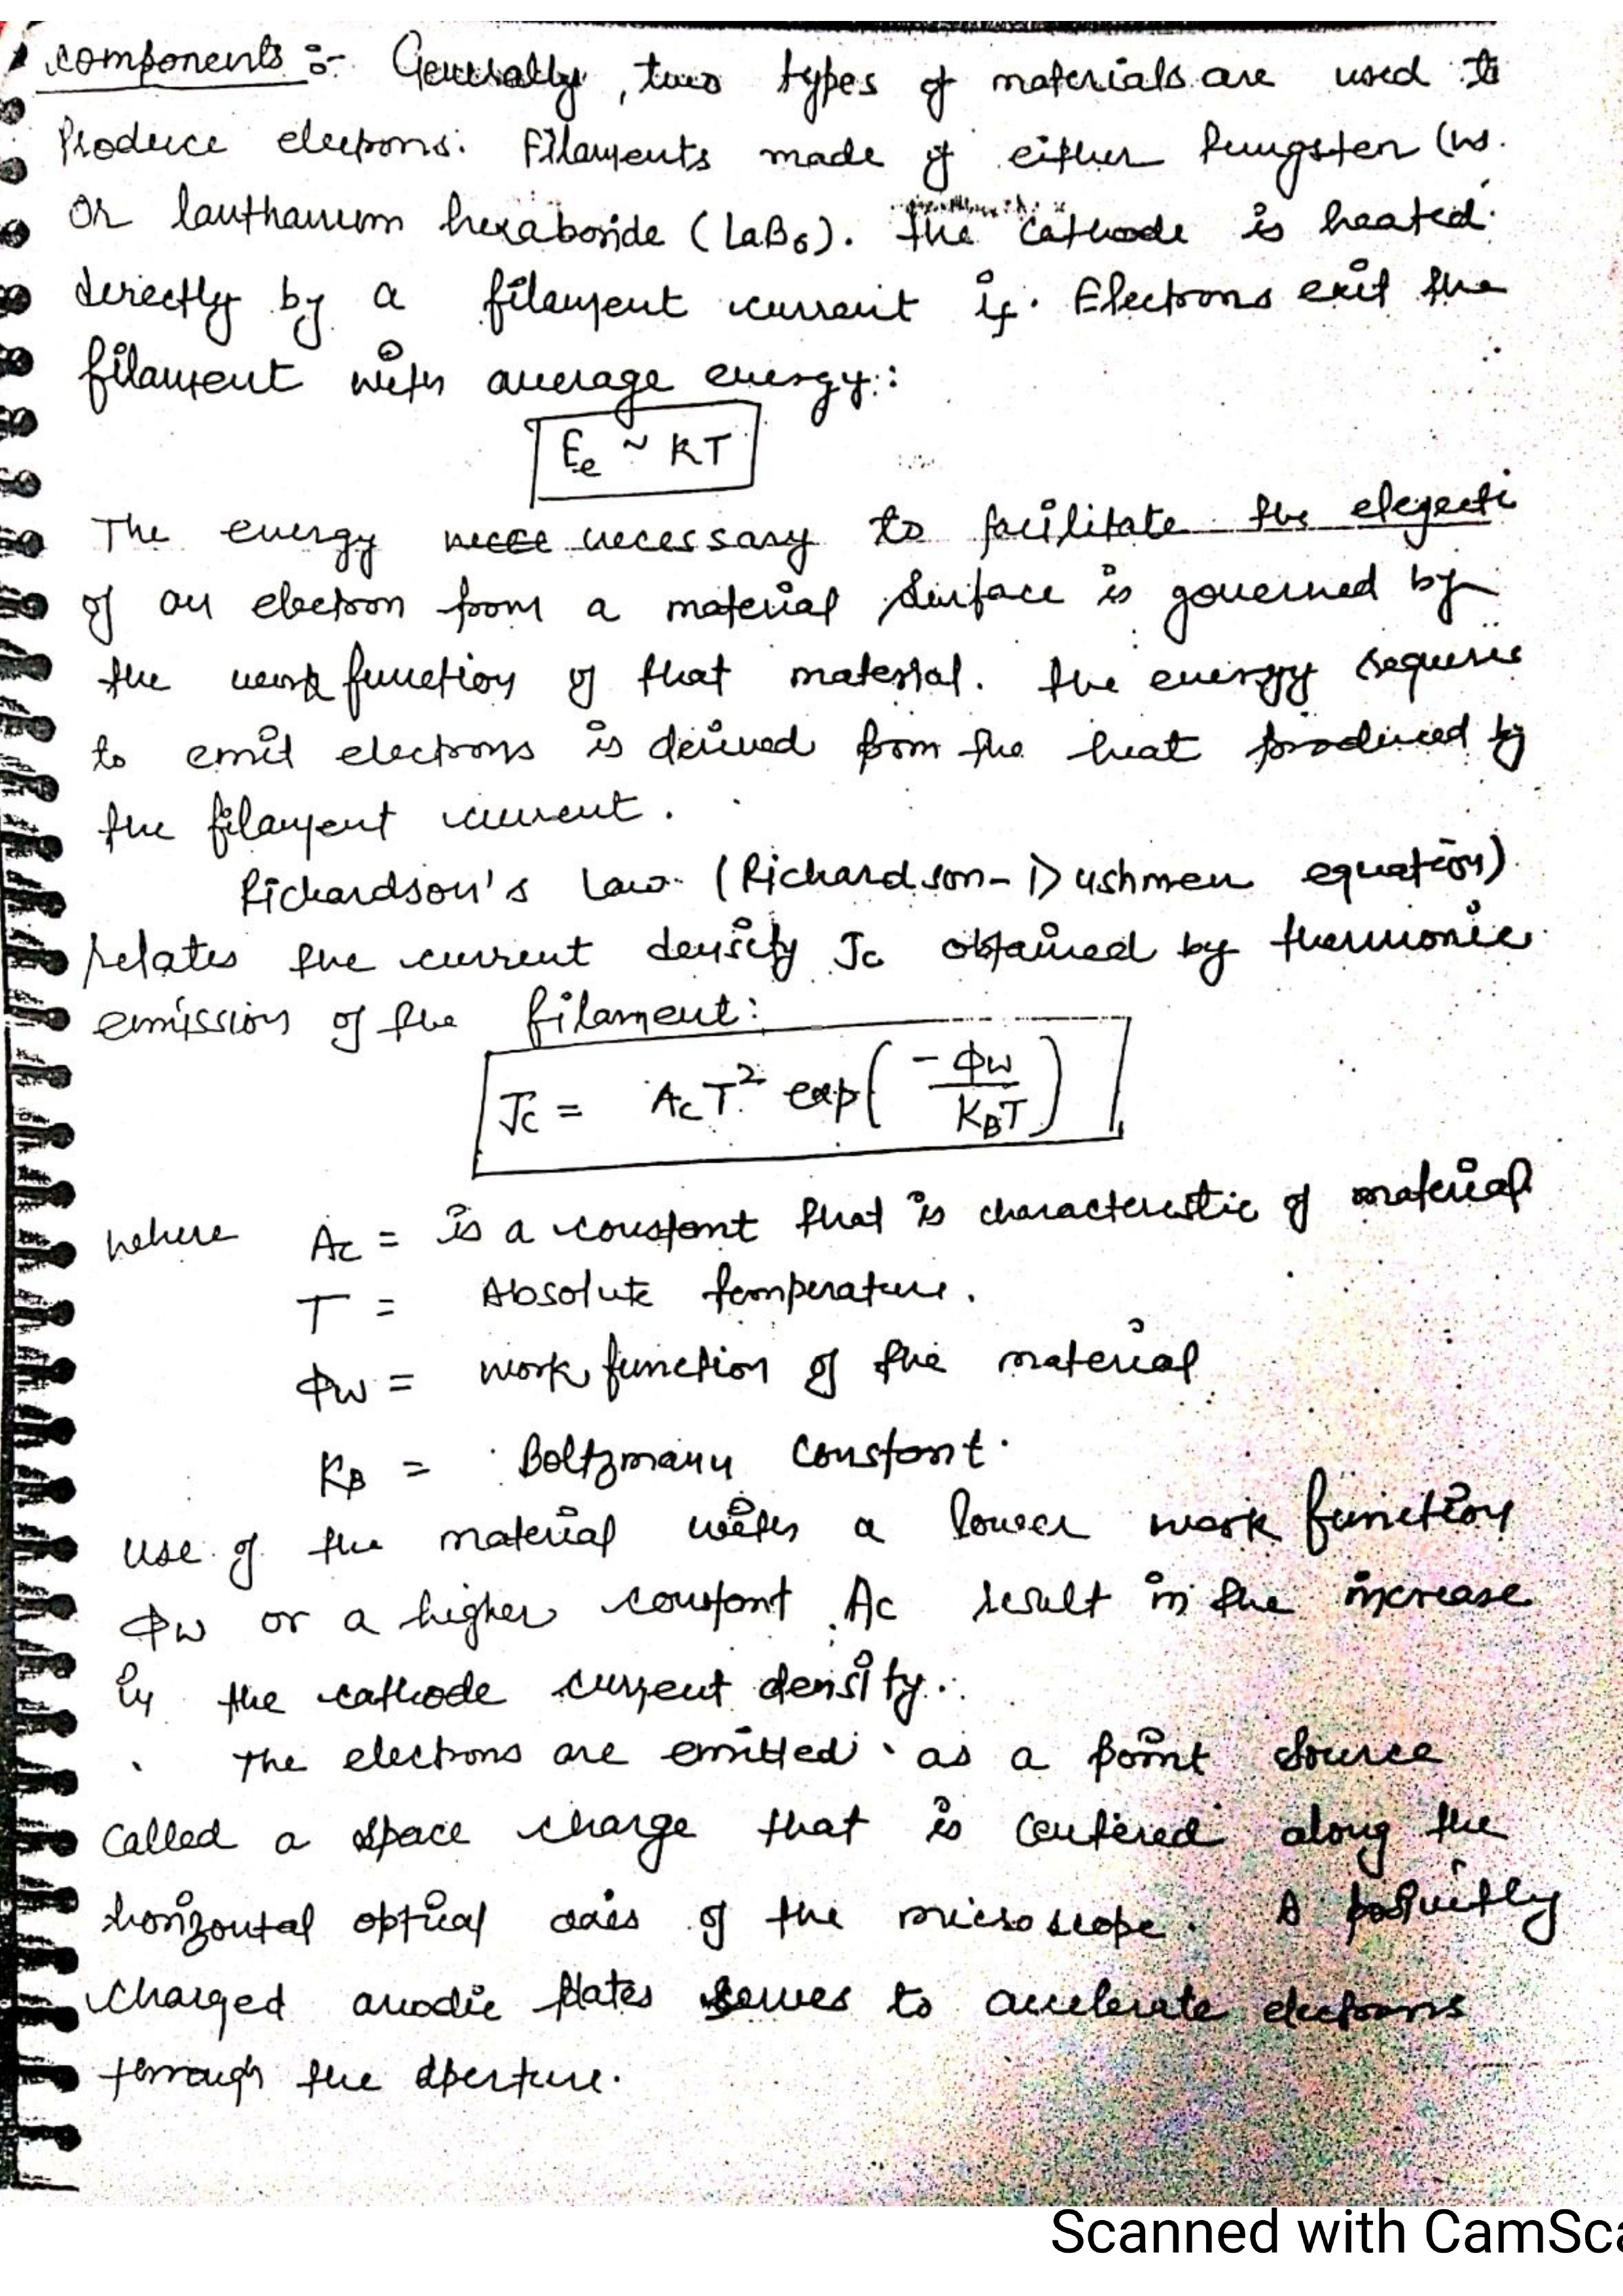 components :- Generally, two types of materials are used to
Produce electrons. Filaments made of either Tungsten (W.
or lanthanum hexaboride (LaB6). The cathode is heated
directly by a filament current if. Electrons exit the
filament with average energy:
Ee ~ KT
The energy necessary to facilitate the elejecti
of an electron from a material surface is governed by
the work function of that material. The energy requires
to emit electrons is derived from the heat produced by
the filament current.
Richardson's Law (Richardson-Dushmen equation)
relates the current density Jc obtained by thermonic
emission of the filament:
Jc = AcT² exp(-ΦW/KBT)
where Ac = is a constant that is characterstic of material
T = Absolute temperature.
ΦW = work function of the material
KB = Boltzmann constant.
use of the material with a lower work function
ΦW or a higher constant Ac result in the increase
in the cathode current density.
The electrons are emitted as a point source
called a space charge that is centered along the
horizontal optical axis of the microscope. A
charged anodic plates serves to accelerate electrons
through the aperture.
Scanned with CamSca